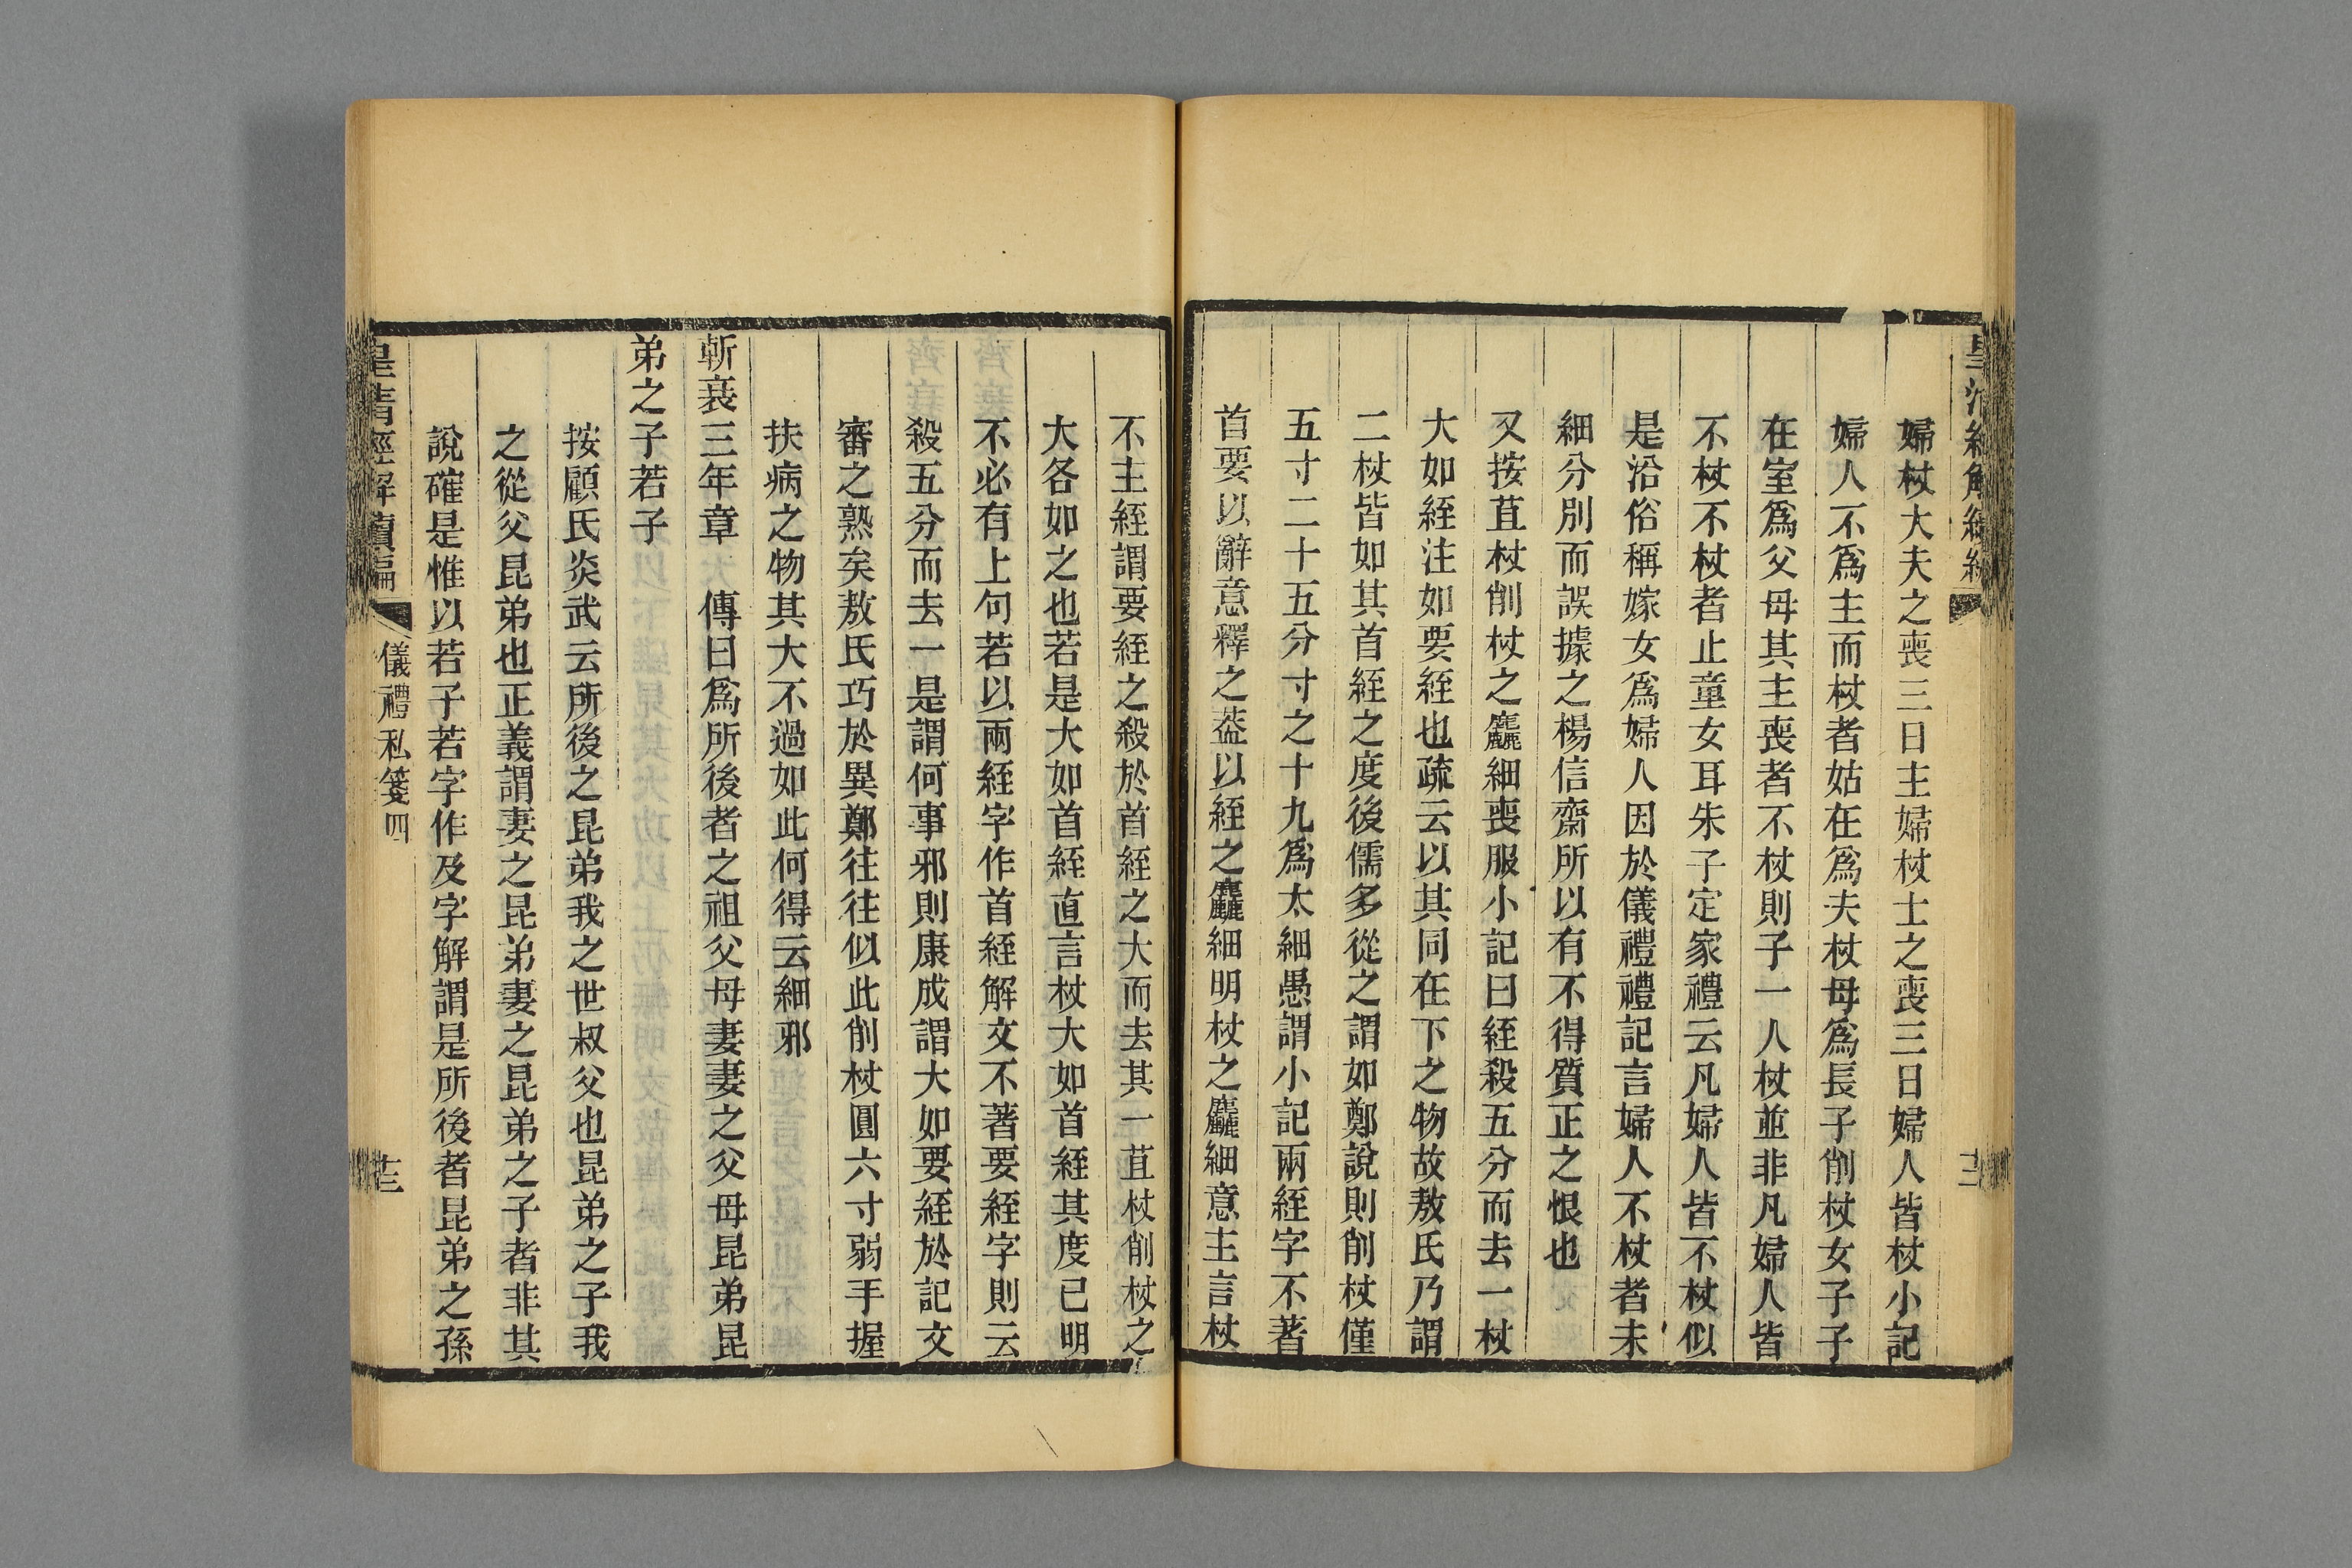 婦杖大夫之喪三日主婦杖士之喪三日婦人皆杖小記
婦人不爲主而杖者姑在爲夫杖母爲長子削杖女子子
在室爲父母其主喪者不杖則子一人杖並非凡婦人皆
不杖不杖者止童女耳朱子定家禮云凡婦人皆不杖似
是沿俗稱嫁女爲婦人因於儀禮禮記言婦人不杖者未
細分別而誤據之楊信齋所以有不得質正之恨也
又按苴杖削杖之麤細喪服小記曰絰殺五分而去一杖
大如絰注如要絰也疏云以其同在下之物故敖氏乃謂
二杖皆如其首絰之度後儒多從之謂如鄭說則削杖僅
五寸二十五分寸之十九爲太細愚謂小記兩絰字不著
首要以辭意釋之葢以絰之麤細明杖之麤細意主言杖
不主絰謂要絰之殺於首絰之大而去其一苴杖削杖之
大各如之也若是大如首絰直言杖大如首絰其度已明
不必有上句若以兩絰字作首絰解文不著要絰字則云
殺五分而去一是謂何事邪則康成謂大如要絰於記文
審之熟矣敖氏巧於異鄭往往似此削杖圓六寸弱手握
扶病之物其大不過如此何得云細邪
斬衰三年章 傳曰爲所後者之祖父母妻妻之父母昆弟昆
弟之子若子
按顧氏炎武云所後之昆弟我之世叔父也昆弟之子我
之從父昆弟也正義謂妻之昆弟妻之昆弟之子者非其
說確是惟以若子若字作及字解謂是所後者昆弟之孫
皇清經解續編
儀禮私箋四